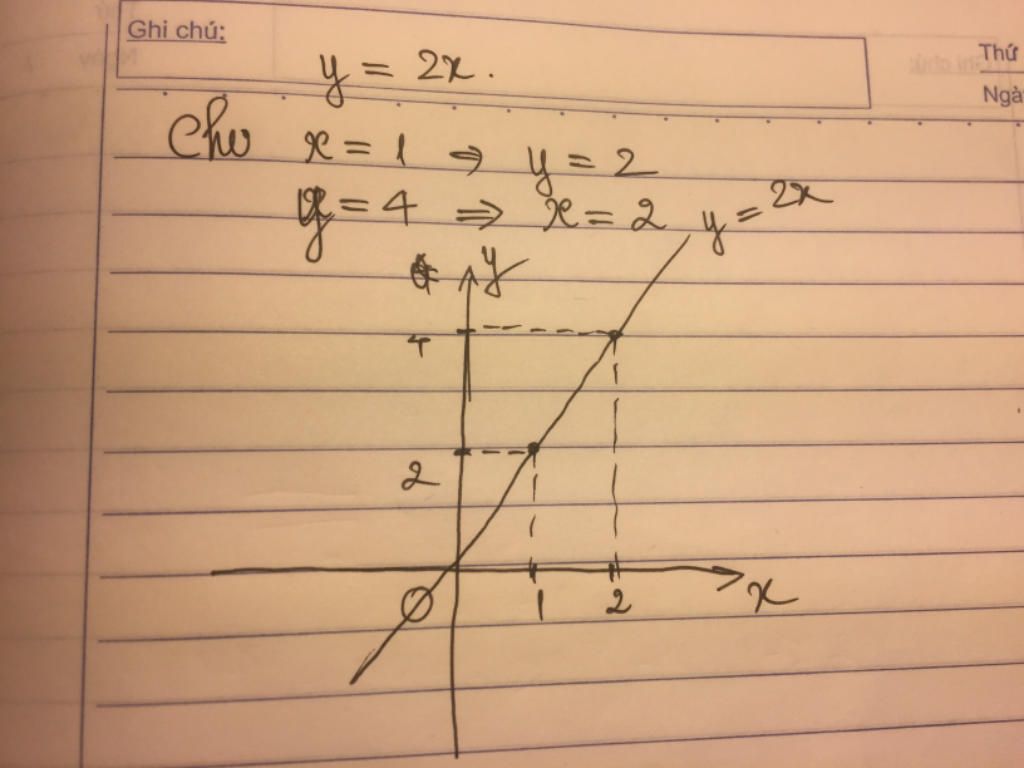 Ghi chú:
Thứ
Ngà
y = 2x.
Cho x = 1 ⇒ y = 2
y = 4 ⇒ x = 2
y = 2x
y
4
2
O
1 2
x